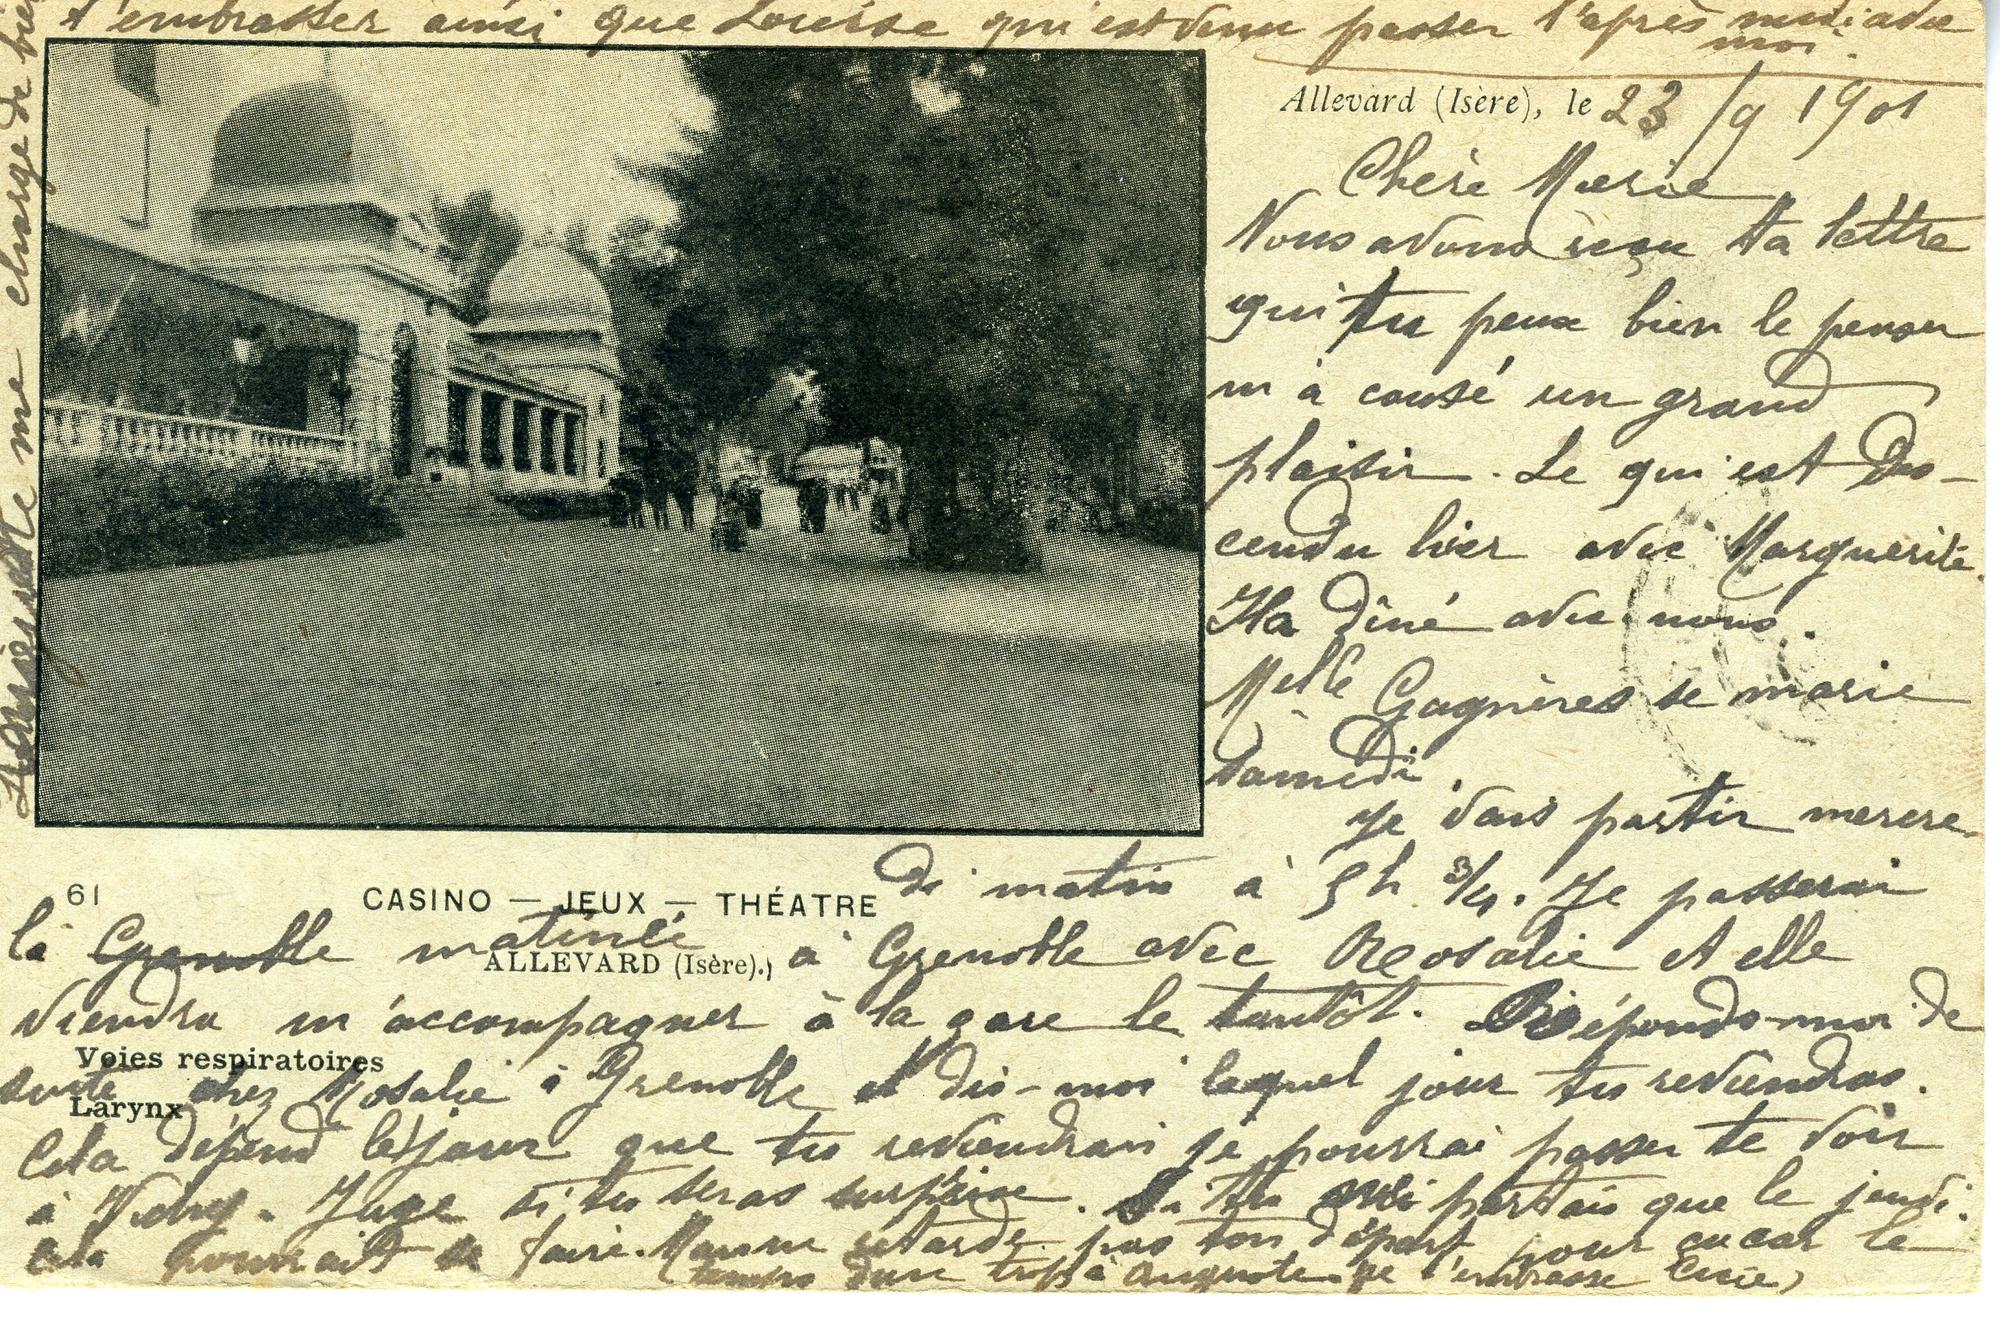 t'embrasser ainsi que Louise qui est venu passer l'après midi avec
moi.
Allevard (Isère), le 23/9 1901
Chère Marie
Nous avons reçu ta lettre
qui tu peux bien le penser
m'a causé un grand
plaisir. Le qui est Des-
cendu hier avec Marguerite.
Il a dîné avec nous.
Melle Gagnères se marie
samedi.
Je vais partir mercre-
di matin à 5h 3/4. Je passerai
61 CASINO — JEUX — THÉATRE
la Grenoble matinée à Grenoble avec Rosalie et elle
ALLEVARD (Isère).
viendra m'accompagner à la gare le tantôt. Réponds-moi de
Voies respiratoires
suite chez Rosalie à Grenoble et dis-moi lequel jour tu reviendras.
Larynx
Cela dépend le jour que tu reviendrai je pourrai passer te voir
à . Juge si tu seras surprise. Si tu partais que le jeudi.
cela pourrait se faire. retarde pas ton départ pour car le
temps dure trop à t'embrasse
me charge de bien